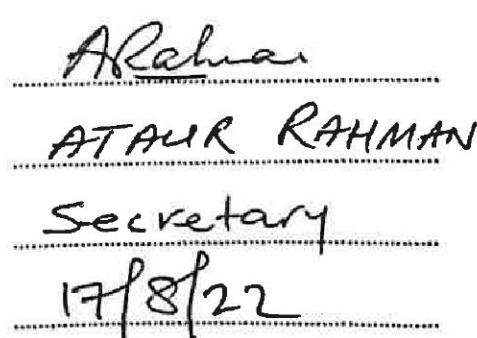 ARahman
ATAUR RAHMAN
Secretary
17/8/22